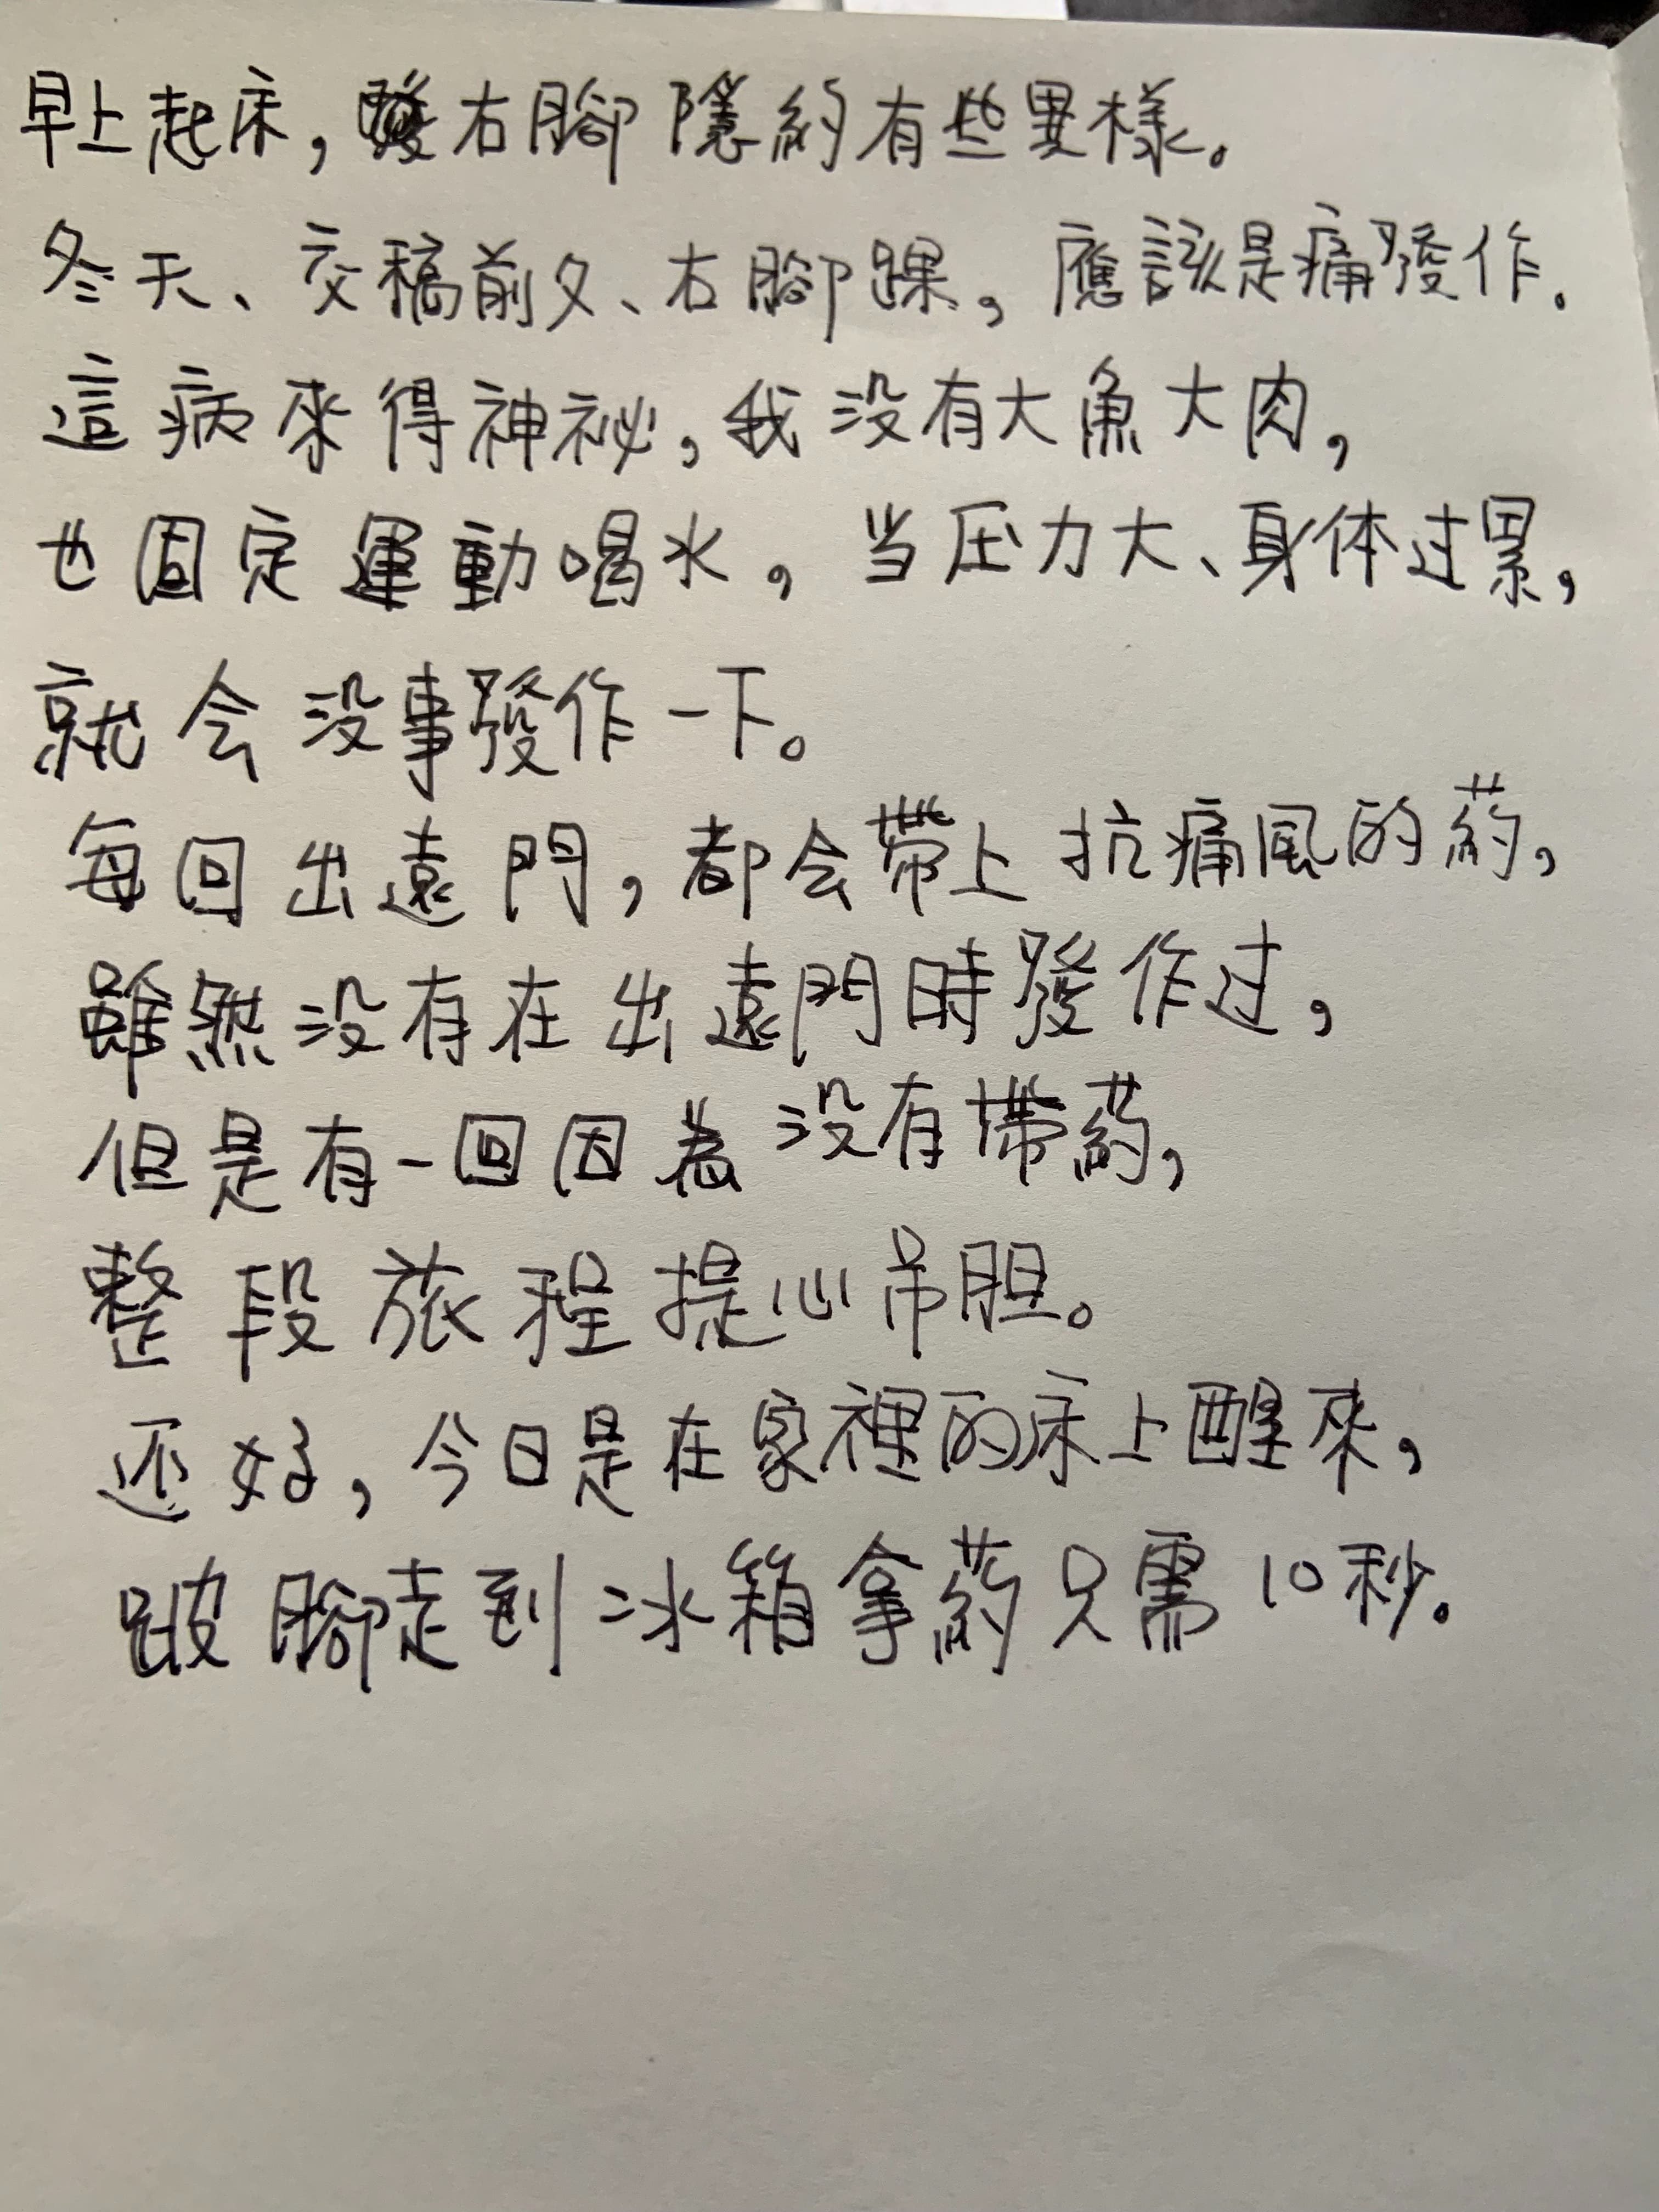 早上起床，右腳隱約有些異樣。
冬天、交稿前夕、右腳踝，應該是痛發作。
這病來得神祕，我没有大魚大肉，
也固定運動喝水，当压力大、身体过累，
就会没事發作一下。
每回出遠門，都会帶上抗痛風的葯，
雖然没有在出遠門時發作过，
但是有一回因為没有帶葯，
整段旅程提心吊胆。
还好，今日是在家裡的床上醒來，
跛腳走到冰箱拿葯只需10秒。